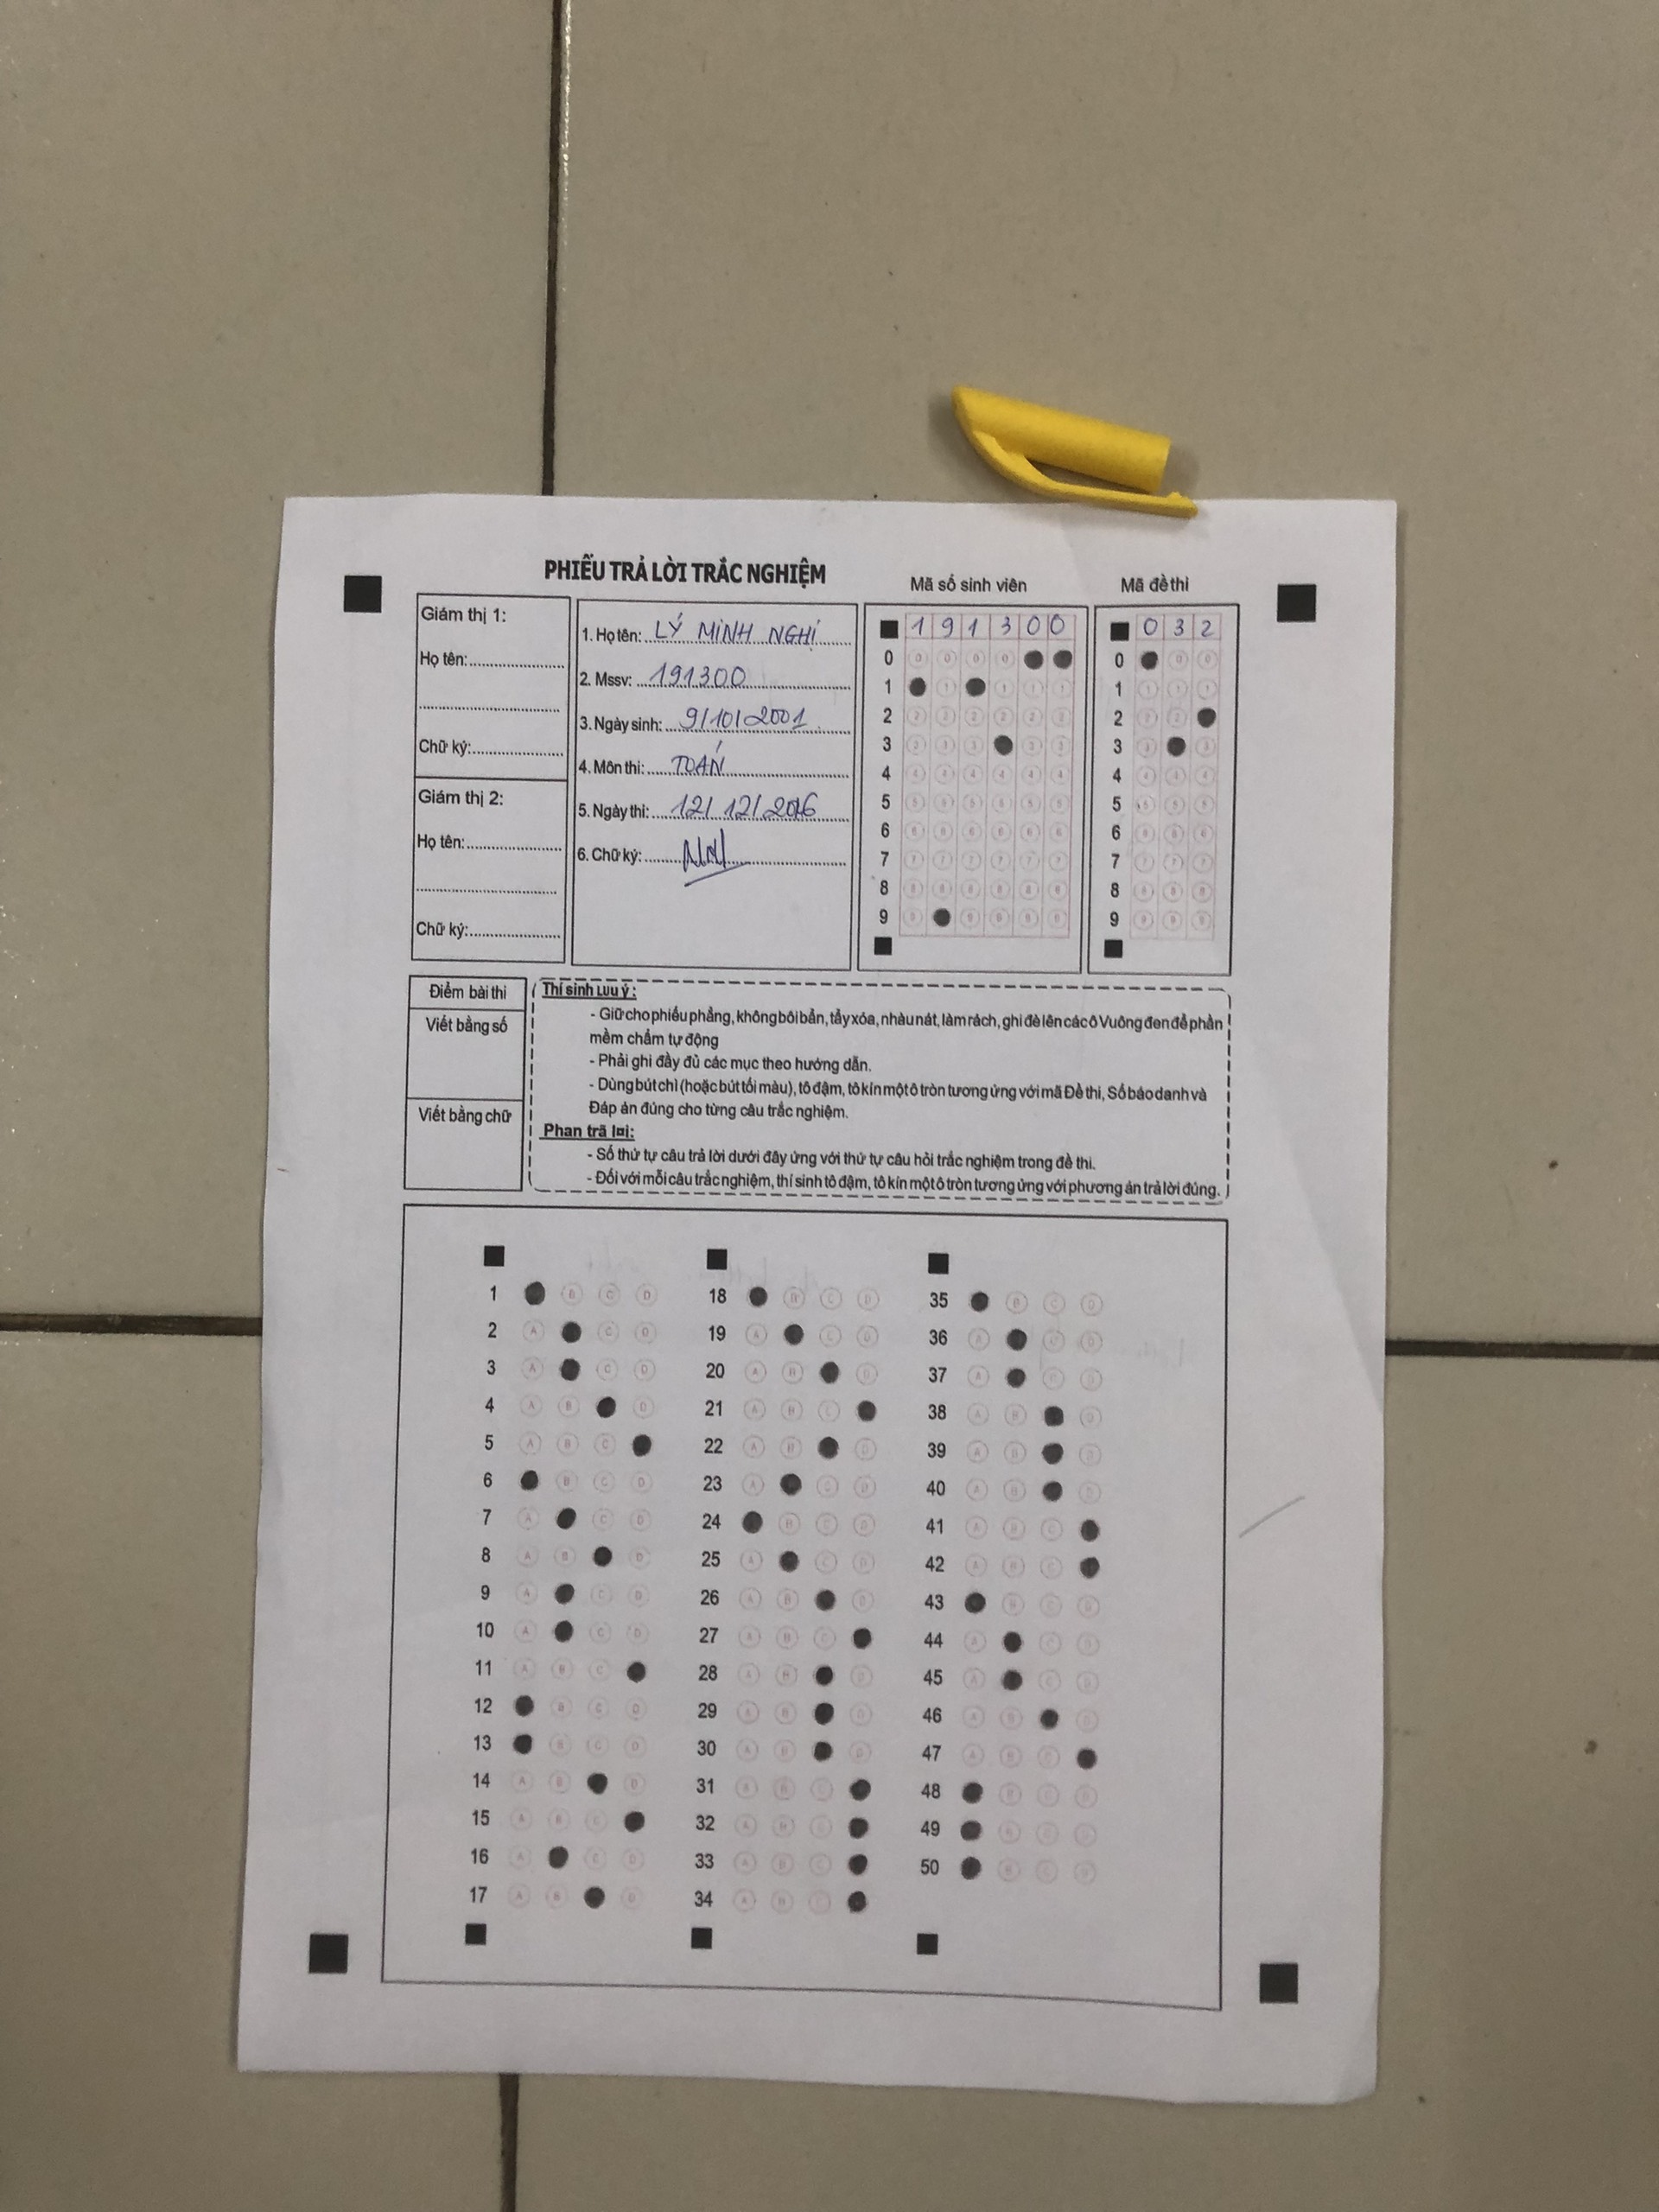 PHIẾU TRẢ LỜI TRẮC NGHIỆM
Giám thị 1:
Họ tên:
Chữ ký:
Giám thị 2:
Họ tên:
Chữ ký:
1. Họ tên: LÝ MINH NGHỊ
2. Mssv: 191300
3. Ngày sinh: 9/10/2001
4. Môn thi: TOÁN
5. Ngày thi: 12/12/2016
6. Chữ ký:
Mã số sinh viên
1 9 1 3 0 0
0
1
2
3
4
5
6
7
8
9
Mã đề thi
0 3 2
0
1
2
3
4
5
6
7
8
9
Điểm bài thi
Viết bằng số
Viết bằng chữ
Thí sinh Lưu ý:
- Giữ cho phiếu phẳng, không bôi bẩn, tẩy xóa, nhàu nát, làm rách, ghi đè lên các ô Vuông đen để phần
mềm chấm tự động
- Phải ghi đầy đủ các mục theo hướng dẫn.
- Dùng bút chì (hoặc bút tối màu), tô đậm, tô kín một ô tròn tương ứng với mã Đề thi, Số báo danh và
Đáp án đúng cho từng câu trắc nghiệm.
Phan trã lại:
- Số thứ tự câu trả lời dưới đây ứng với thứ tự câu hỏi trắc nghiệm trong đề thi.
- Đối với mỗi câu trắc nghiệm, thí sinh tô đậm, tô kín một ô tròn tương ứng với phương án trả lời đúng.
1 B C D
2 A C D
3 A C D
4 A B D
5 A B C
6 B C D
7 A C D
8 A B D
9 A C D
10 A C D
11 A B C
12 B C D
13 B C D
14 A B D
15 A B C
16 A C D
17 A B D
18 B C D
19 A C D
20 A B D
21 A B C
22 A B D
23 A C D
24 B C D
25 A C D
26 A B D
27 A B C
28 A B D
29 A B D
30 A B D
31 A B C
32 A B C
33 A B C
34 A B C
35 B C D
36 A C D
37 A C D
38 A B D
39 A B D
40 A B D
41 A B C
42 A B C
43 B C D
44 A C D
45 A C D
46 A B D
47 A B C
48 B C D
49 B C D
50 B C D